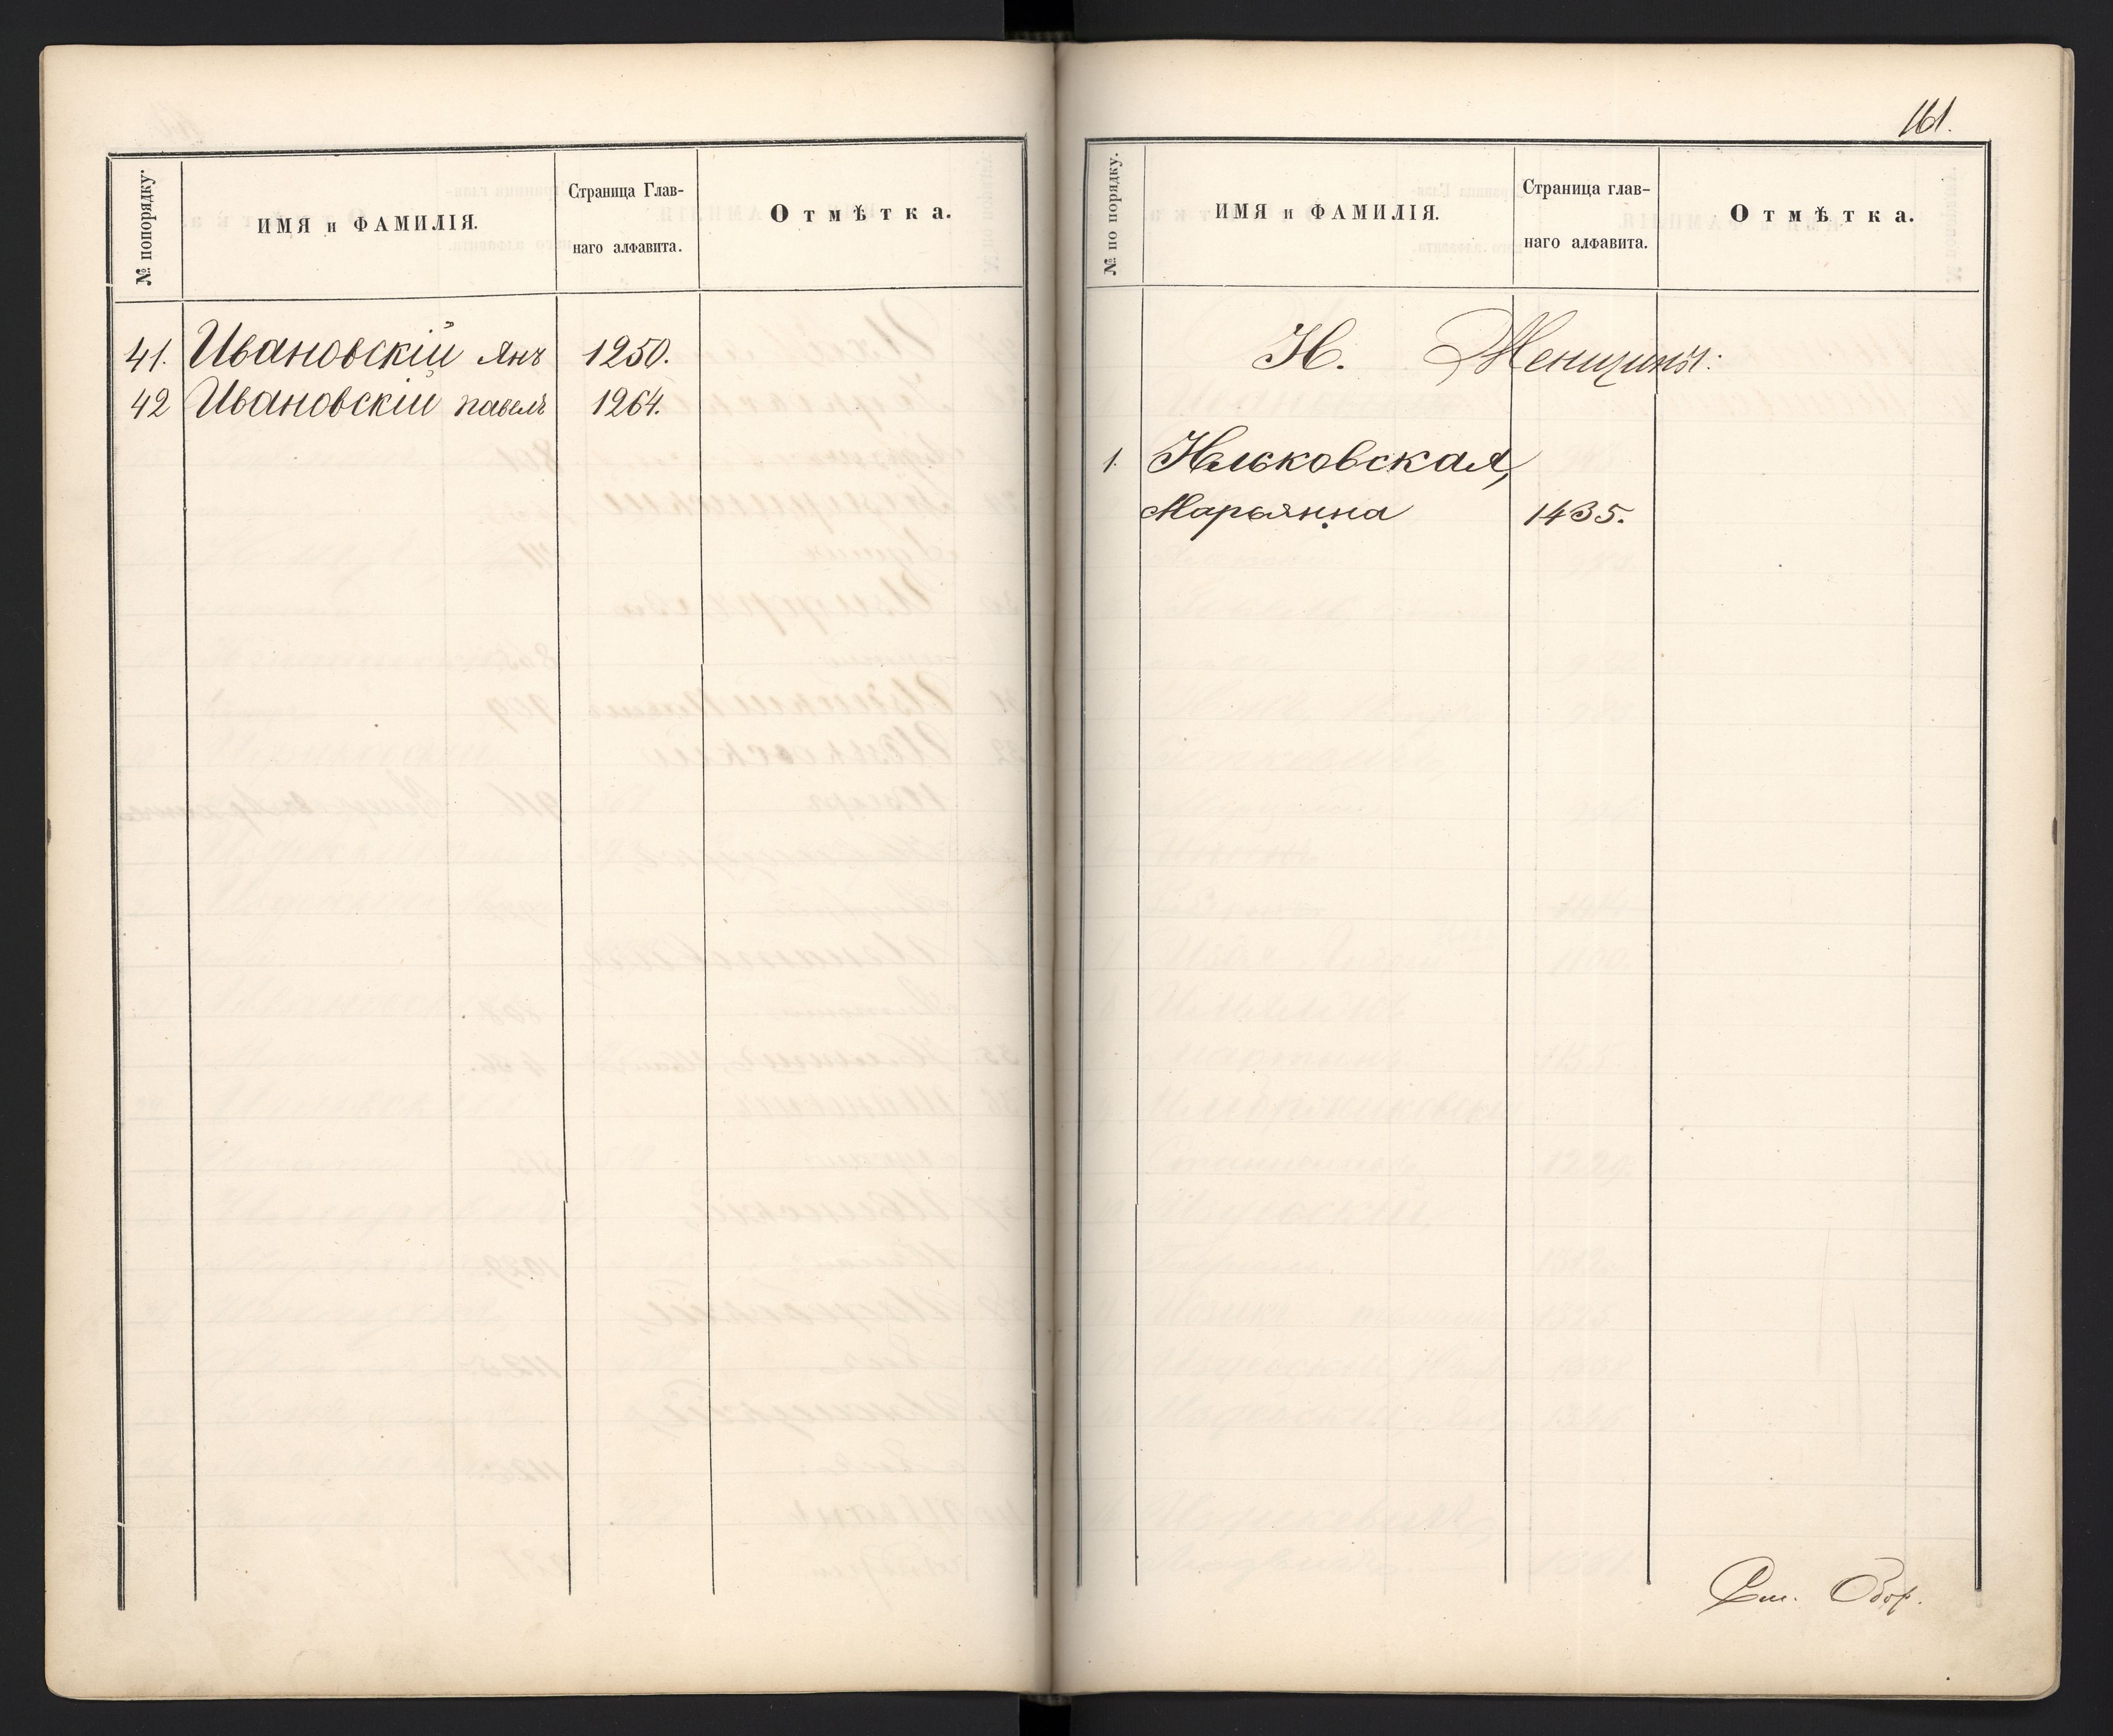 № попорядку.
ИМЯ и ФАМИЛІЯ.
Страница Глав-
наго алфавита.
Отмѣтка.
41. Ивановскій Янъ 1250.
42 Ивановскій Павелъ 1264.
161.
№ по порядку.
ИМЯ и ФАМИЛІЯ.
Страница глав-
наго алфавита.
Отмѣтка.
И. Женщины:
1. Ильковская,
Марьянна 1435.
См. Обор.